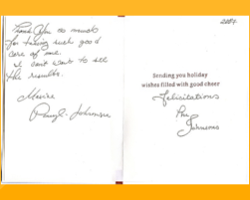 Thank you so much
for taking such good
care of me.
I can't wait to see
the results.
Johnson
2004
Sending you holiday
wishes filled with good cheer
Felicitations
Johnsons